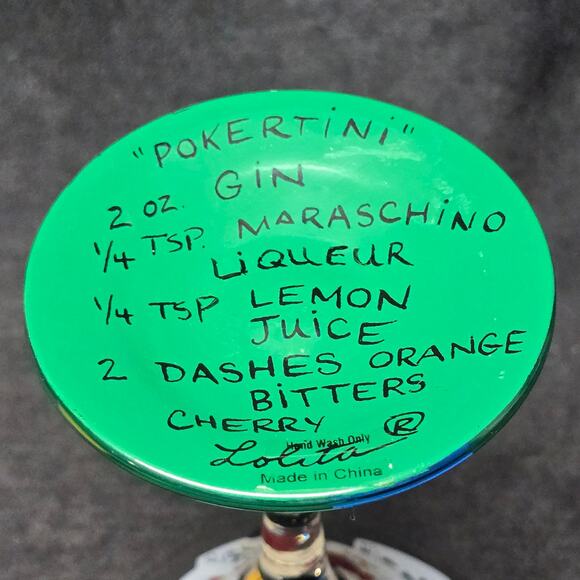 "POKERTiNi"
2 OZ. GiN
1/4 TSP. MARASCHiNO
LiQUEUR
1/4 TSP LEMON
JUiCE
2 DASHES ORANGE
BiTTERS
CHERRY ®
Hand Wash Only
Lolita
Made in China